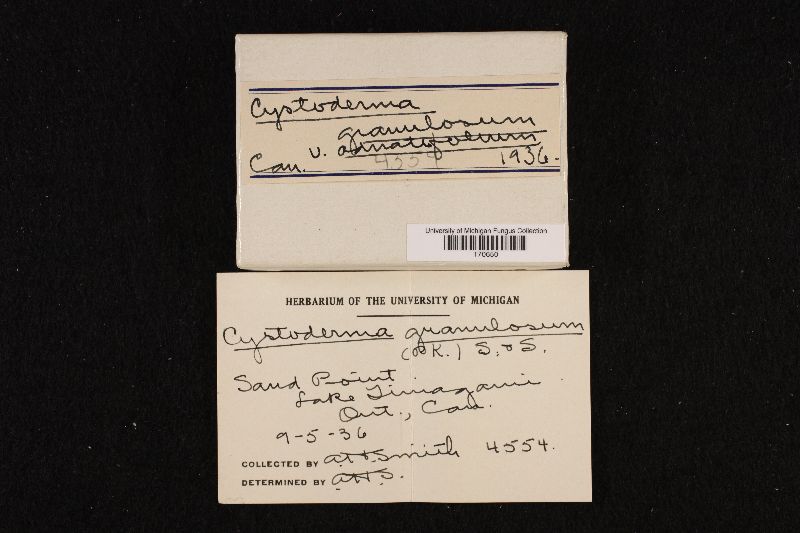 Cystoderma
granulosum
Can. v. adnatifolium
4554 1936-
University of Michigan Fungus Collection
170650
HERBARIUM OF THE UNIVERSITY OF MICHIGAN
Cystoderma granulosum
S. & S.
Sand Point
Lake Timagami
Ont., Can.
9-5-36
COLLECTED BY AHSmith 4554.
DETERMINED BY AHS.